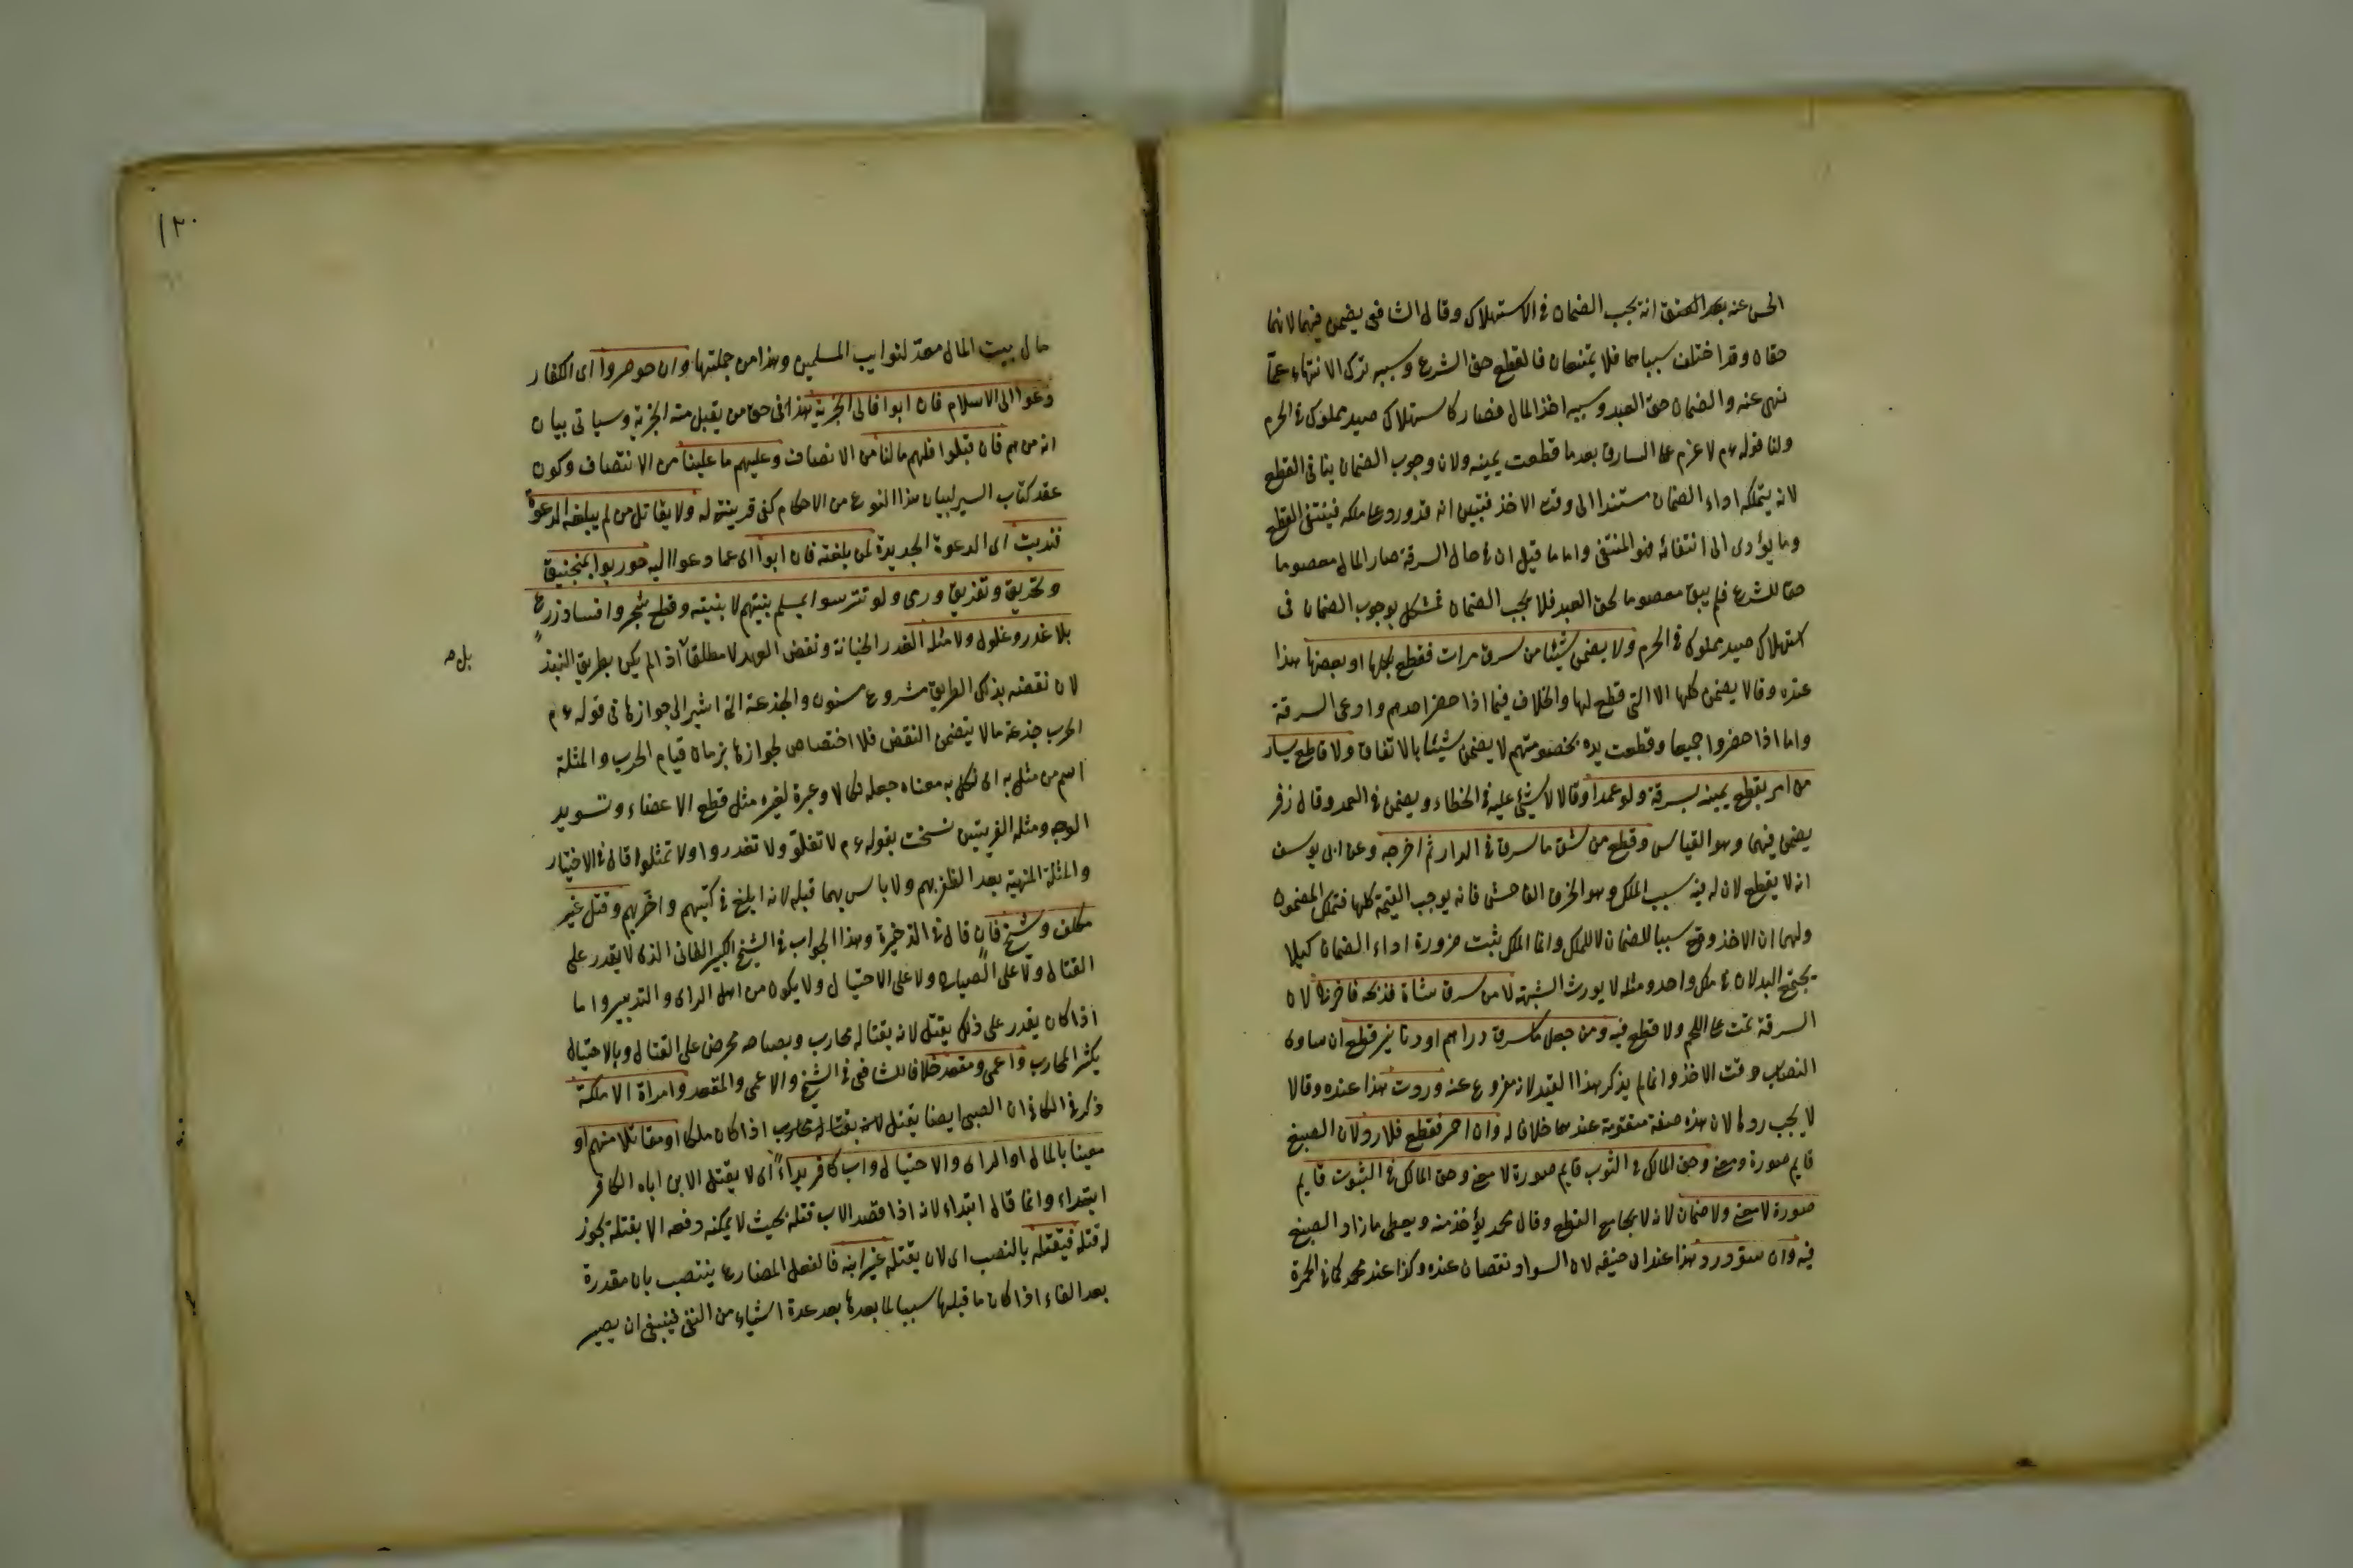 الحسن عنه بعد العتق انه يجب الضمان فى الاستهلاك وقال الشافعى يضمن فيهما لانهما
حقان وقد اختلف سبباهما فلا يمتنعان فالقطع حق الشرع وسببه ترك الانتهاء عما
نهى عنه والضمان حق العبد وسببه اخذ المال فصار كاستهلاك صيد مملوك فى الحرم
ولنا قوله عم لا غرم على السارق بعد ما قطعت يمينه ولان وجوب الضمان ينافى القطع
لانه يتملكه اداء الضمان مستندا الى وقت الاخذ فتبين انه قد ورد على ملكه فينتفى القطع
وما يؤدى الى انتفائه فهو المنتفى واما ما قيل ان فى حال السرقة صار المال معصوما
حقا للشرع فلم يبق معصوما لحق العبد فلا يجب الضمان فمشكل بوجوب الضمان فى
استهلاك صيد مملوك فى الحرم ولا يضمن شيئا من سرق مرات فقطع بكلها او بعضها هذا
عنده وقالا يضمن كلها الا التى قطع لها والخلاف فيما اذا حضر احدهم وادعى السرقة
واما اذا حضروا جميعا وقطعت يده بخصومتهم لا يضمن شيئا بالاتفاق ولا قاطع يسار
من امر بقطع يمينه بسرقة ولو عمدا وقالا لا شئ عليه فى الخطاء ويضمن فى العمد وقال زفر
يضمن فيهما وهو القياس وقطع من شق ما سرق فى الدار ثم اخرجه وعن ابى يوسف
انه لا يقطع لان له فيه سبب الملك وهو الخرق الفاحش فانه يوجب القيمة كلها فتملك المضمون
ولهما ان الاخذ وقع سببا للضمان لا للملك وانما الملك يثبت ضرورة اداء الضمان كيلا
يجتمع البدلان فى ملك واحد ومثله لا يورث الشبهة لا من سرق شاة فذبحه فاخرجها لان
السرقة تمت على اللحم ولا قطع فيه ومن جعل ما سرق دراهم او دنانير قطع ان ساوى
النصاب وقت الاخذ وانما لم يذكر هذا القيد لانه مفروغ عنه وردت هذا عنده وقالا
لا يجب ردها لان هذه صنعة متقومة عندهما خلافا له وان احمر فقطع فلا رد لان الصبغ
قايم صورة ومعنى وحق المالك فى الثوب قايم صورة لا معنى وحق المالك فى الثبوت قايم
صورة لا معنى ولا ضمان لانه لا يجامع القطع وقال محمد يؤخذ منه ويعطى ما زاد الصبغ
فيه وان سود رد هذا عند ابى حنيفه لان السواد نقصان عنده وكذا عند محمد كما فى الحمرة
١٢٠
مال بيت المال معد لنوايب المسلمين وهذا من جملتها وان حوصروا اى الكفار
دعوا الى الاسلام فان ابوا فالى الجزية هذا فى حق من يقبل منه الجزية وسياتى بيان
انه من هم فان قبلوا فلهم ما لنا من الانصاف وعليهم ما علينا من الانتصاف وكون
عقد كتاب السير لبيان هذا النوع من الاحكام كفى قرينة له ولا يقاتل من لم يبلغه الدعوة
فندبت اى الدعوة الجديدة لمن بلغته فان ابوا اى عما دعوا اليه حوربوا بمنجنيق
وتحريق وتغريق ورمى ولو تترسوا بمسلم بنيتهم لا بنيته وقطع شجر وافساد زرع
بلا غدر وغلول ولا مثلة الغدر الخيانة ونقض العهد لا مطلقا اذا لم يكن بطريق النبذ
بل صح
لان نقضه بذلك الطريق مشروع مسنون والخدعة التى اشير الى جوازها فى قوله عم
الحرب خدعة ما لا يتضمن النقض فلا اختصاص لجوازها بزمان قيام الحرب والمثلة
اسم من مثل به اى نكل به معناه جعله نكالا وعبرة لغيره مثل قطع الاعضاء وتسويد
الوجه ومثله العرنيين نسخت بقوله عم لا تغلوا ولا تغدروا ولا تمثلوا قال فى الاختيار
والمثلة المنهية بعد الظفر بهم ولا باس بها قبله لانه ابلغ فى كبتهم واضر بهم وقتل غير
مكلف وشيخ فان قال فى الذخيرة وهذا الجواب فى الشيخ الكبير الفانى الذى لا يقدر على
القتال ولا على الصياح ولا على الاحتيال ولا يكون من اهل الراى والتدبير واما
اذا كان يقدر على ذلك يقتل لانه بقتاله محارب وبصياحه محرض على القتال وبالاحتيال
يكثر المحارب واعمى ومقعد خلافا للشافعى فى الشيخ والاعمى والمقعد وامراة الا ملكة
ذكر فى الكافى ان الصبى ايضا يقتل لانه بقتاله محارب اذا كان ملكا او مقاتلا منهم او
معينا بالمال او الراى والاحتيال واب كافر بداء اى لا يقتل الابن اباه الكافر
ابتداء وانما قال ابتداء لانه اذا قصد الاب قتله بحيث لا يمكنه دفعه الا بقتله يجوز
له قتله فيقتله بالنصب اى لان يقتله غير ابنه فالفعل المضارع ينتصب بان مقدرة
بعد الفاء اذا كان ما قبلها سببا لما بعدها بعد عدة اشياء من النفى فينبغى ان يصير